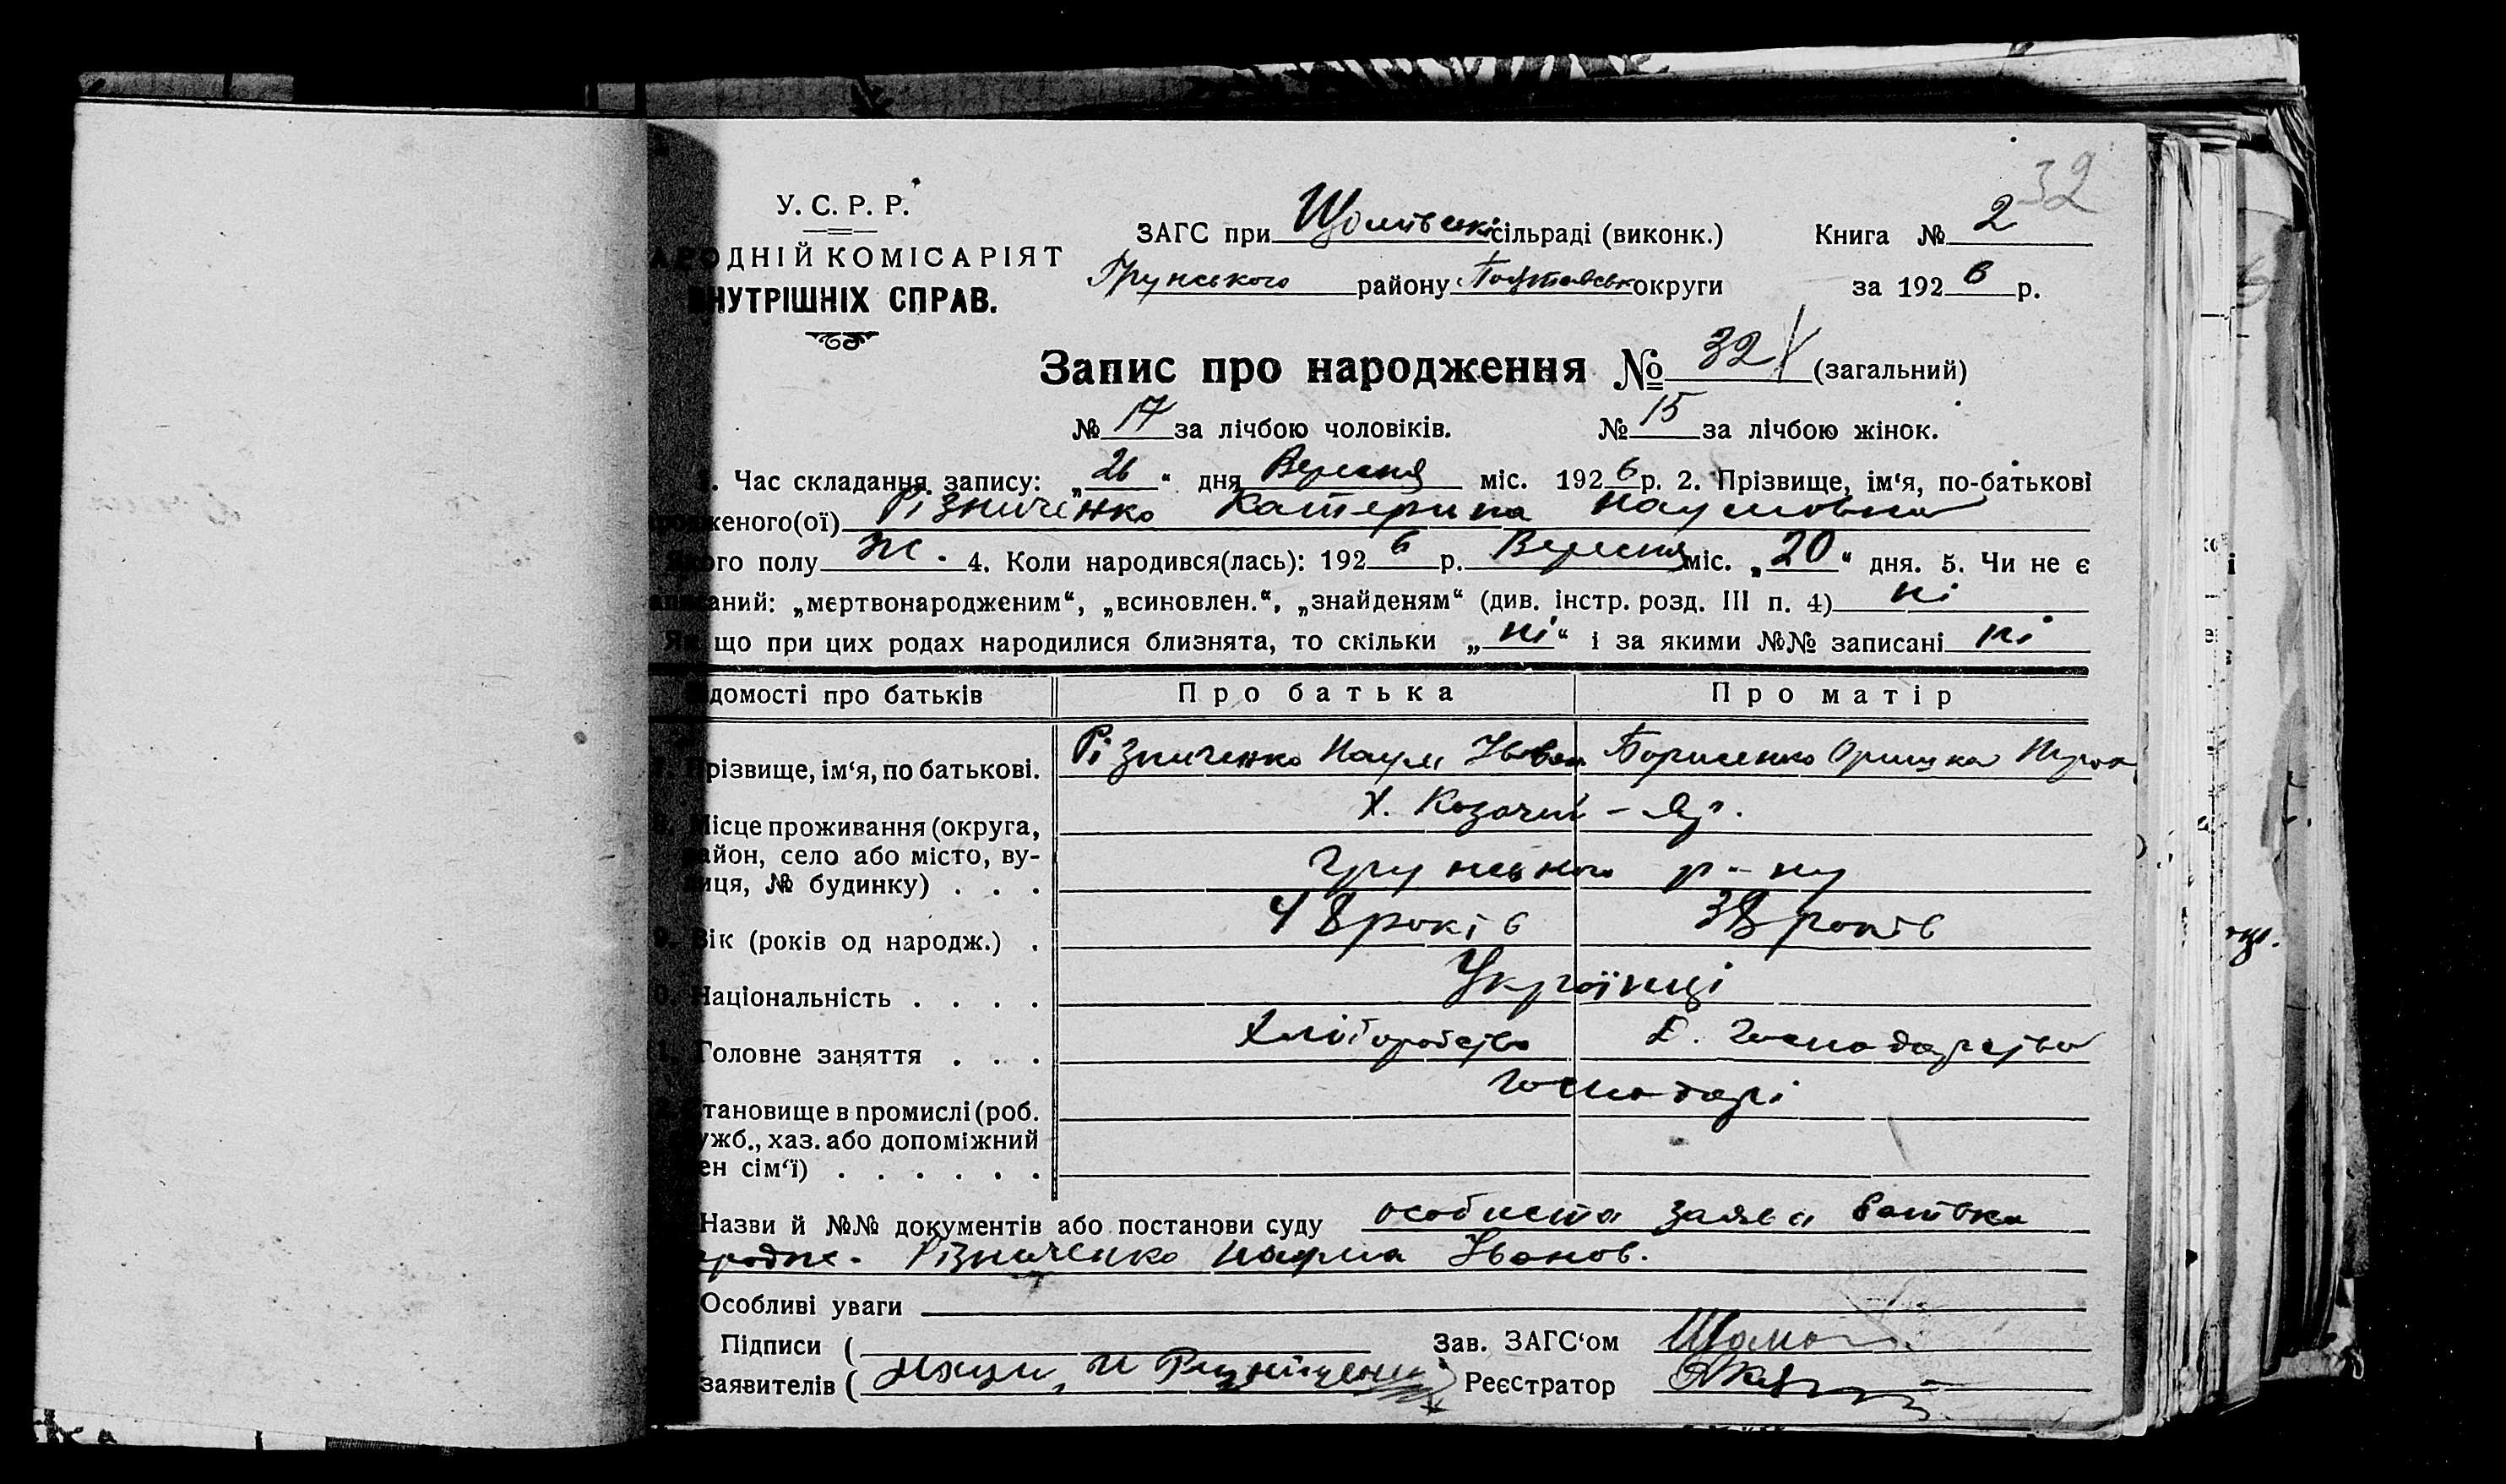 32
У. С. Р. Р.
АРОДНІЙ КОМІСАРІЯТ
ВНУТРІШНІХ СПРАВ.
ЗАГС при сільраді (виконк.) Книга № 2
Грунського району Полтавськ округи за 192 6 р.
Запис про народження № 32 (загальний)
№ 17 за лічбою чоловіків. № 15 за лічбою жінок.
1. Час складання запису: „ 26 “ дня Вересня міс. 192 6 р. 2. Прізвище, ім‘я, по-батькові
родженого(ої) Різниченко Катерина Наумовна
Якого полу ж. 4. Коли народився(лась): 192 6 р. Вересня міс. „ 20 “ дня. 5. Чи не є
аписаний: „мертвонародженим“, „всиновлен.“, „знайденям“ (див. інстр. розд. III п. 4) ні
Як що при цих родах народилися близнята, то скільки „ ні “ і за якими №№ записані ні
ідомості про батьків Про батька Про матір
7. Прізвище, ім‘я, по батькові. Різниченко Наум Іван Борисенко Оришка
8. Місце проживання (округа, х. Козачий-Яр.
район, село або місто, ву-
лиця, № будинку) . . . Грунського р-ну
9. Вік (років од народж.) . 48 років 38 років
0. Національність . . . . Українці
1. Головне заняття . . . Хліборобство Д. господарство
тановище в промислі (роб. господарі
ужб., хаз. або допоміжний
ен сім‘ї) . . . . . .
Назви й №№ документів або постанови суду особиста заява батька
Різниченко Наума Іванов.
Особливі уваги
Підписи ( Зав. ЗАГС‘ом
заявителів ( Реєстратор